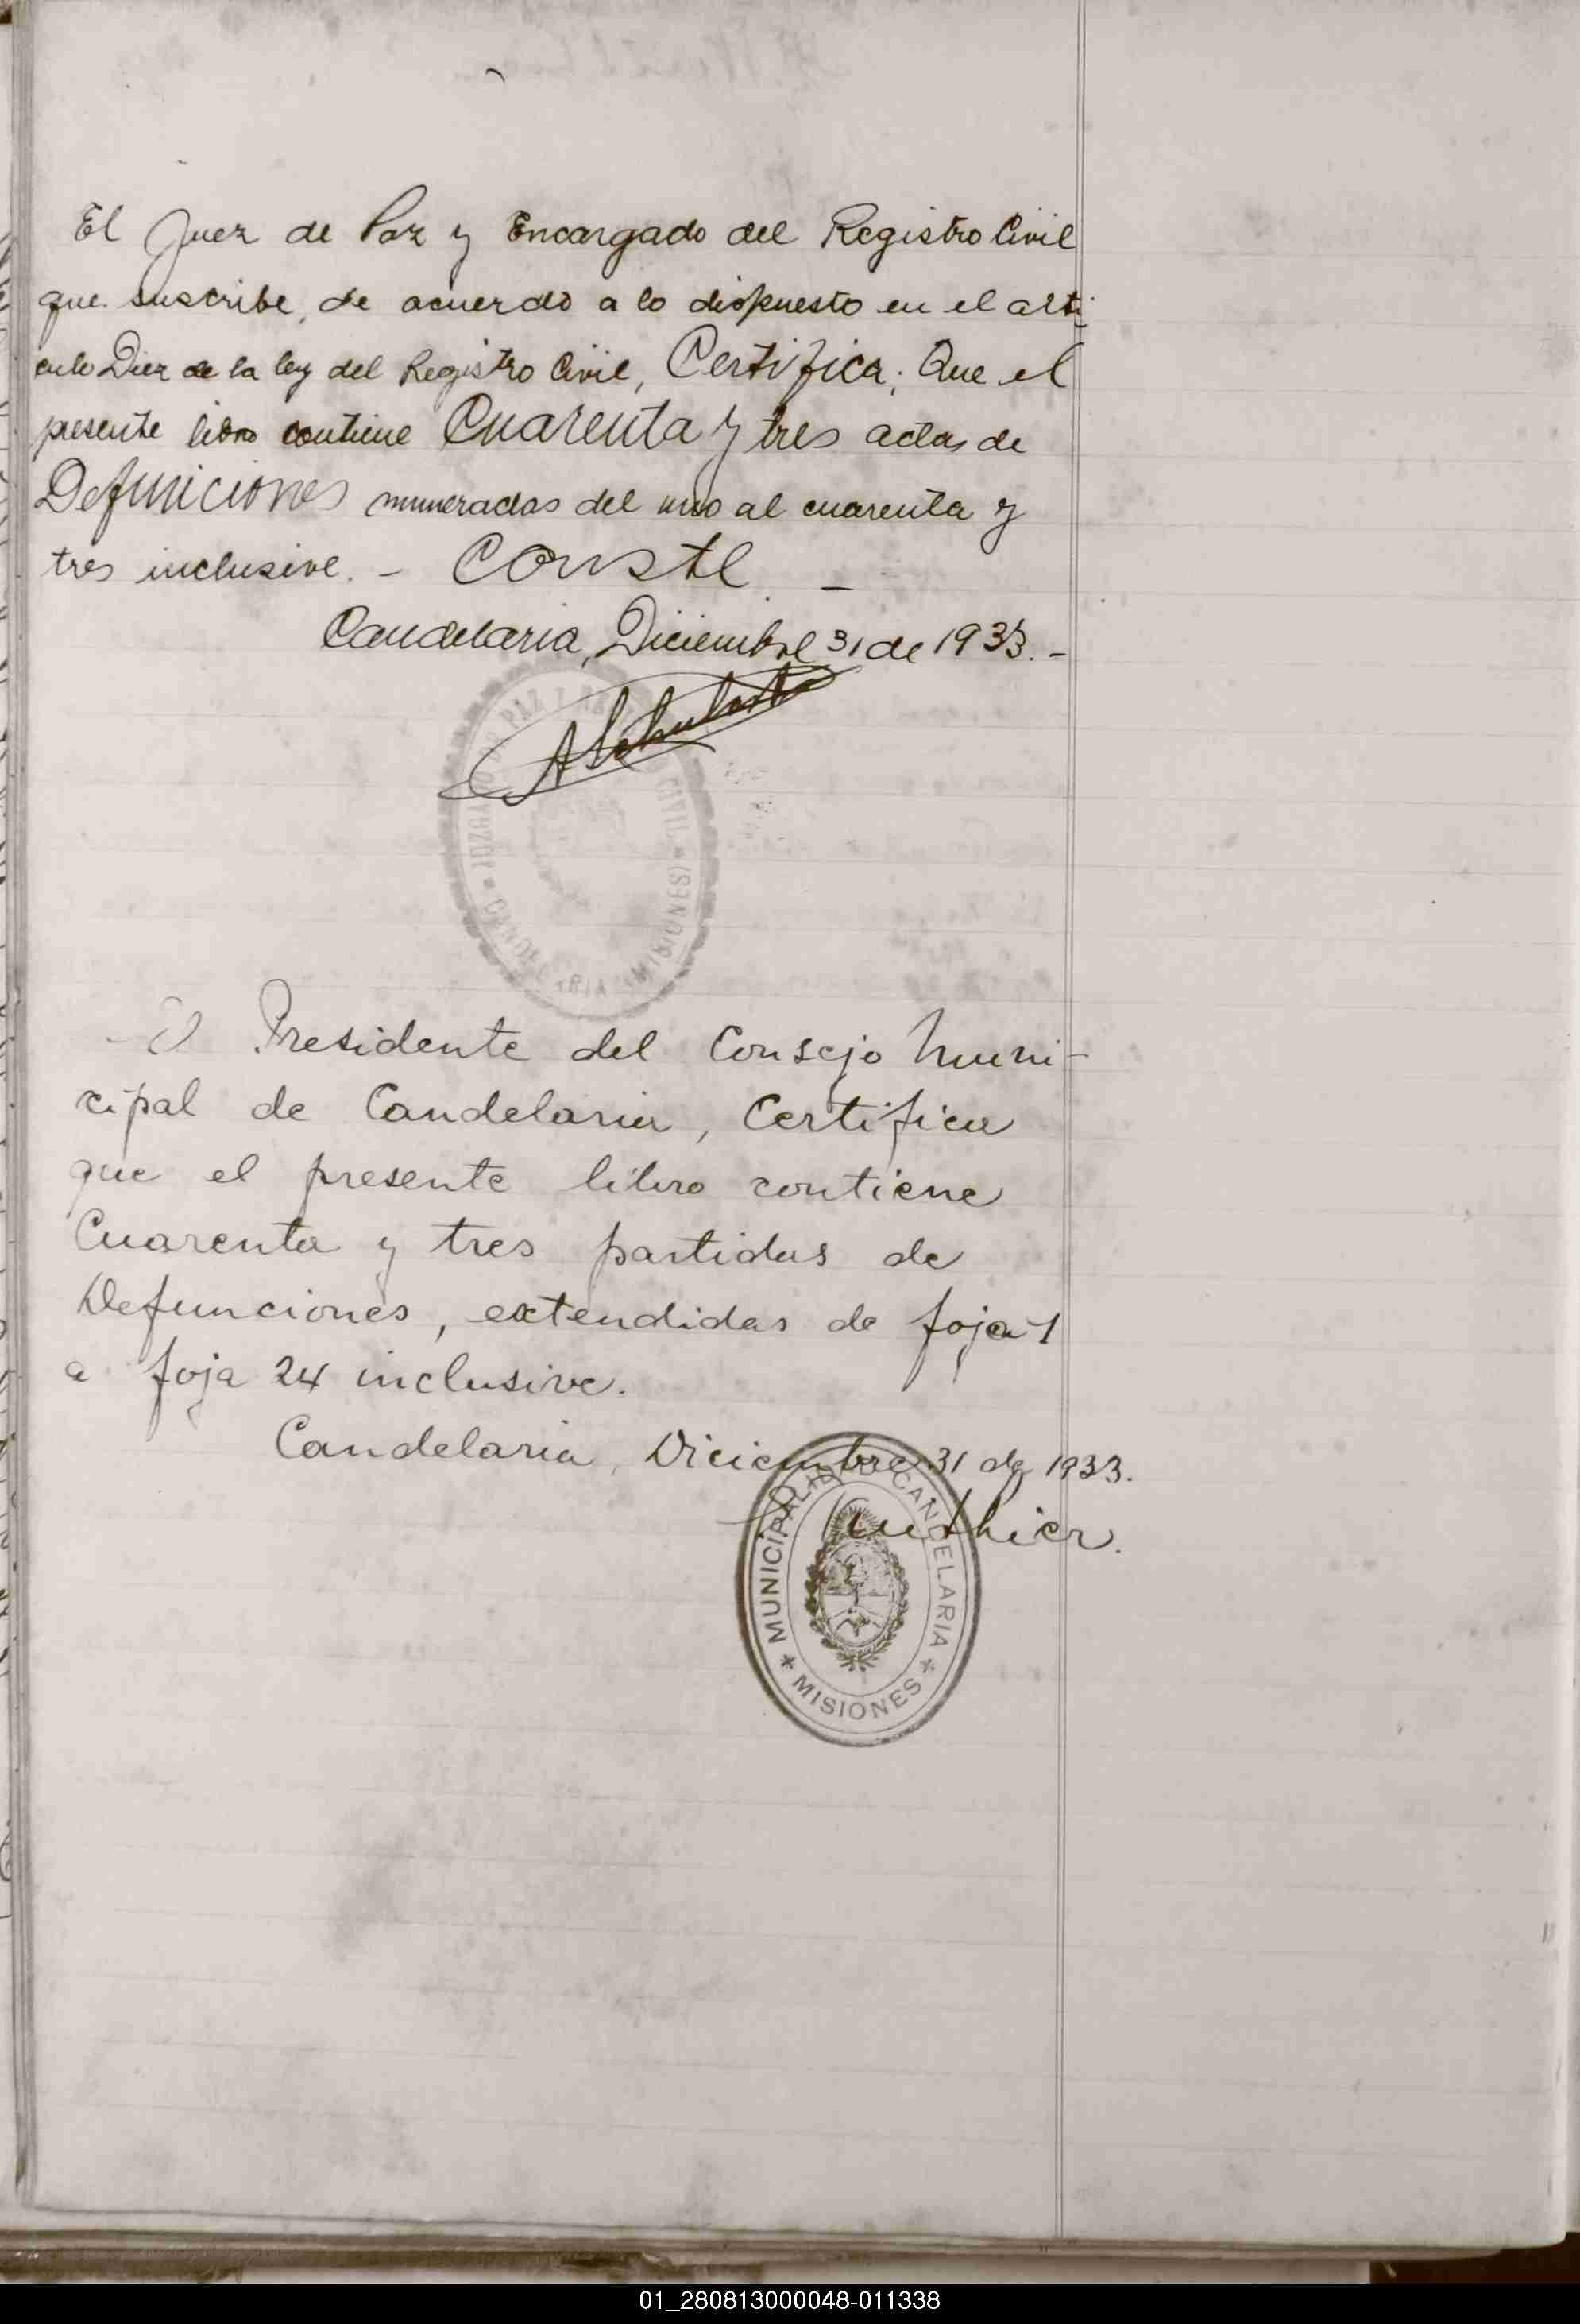 El Juez de Paz y Encargado del Registro Civil
que suscribe, de acuerdo a lo dispuesto en el arti-
culo Diez de la ley del Registro Civil, Certifica; Que el
presente libro contiene Cuarenta y tres actas de
Defuniciones numeradas del uno al cuarenta y
tres inclusive. - Conste. -
Candelaria, Diciembre 31 de 1933. -
JUZGADO DE PAZ Y CIVIL * CANDELARIA (MISIONES)
El Presidente del Consejo Muni-
cipal de Candelaria, Certifica
que el presente libro contiene
Cuarenta y tres partidas de
Defunciones, extendidas de foja 1
a foja 24 inclusive.
Candelaria, Diciembre 31 de 1933.
MUNICIPALIDAD CANDELARIA
* MISIONES *
01_280813000048-011338